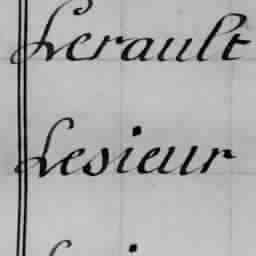 Lerault
Lesieur